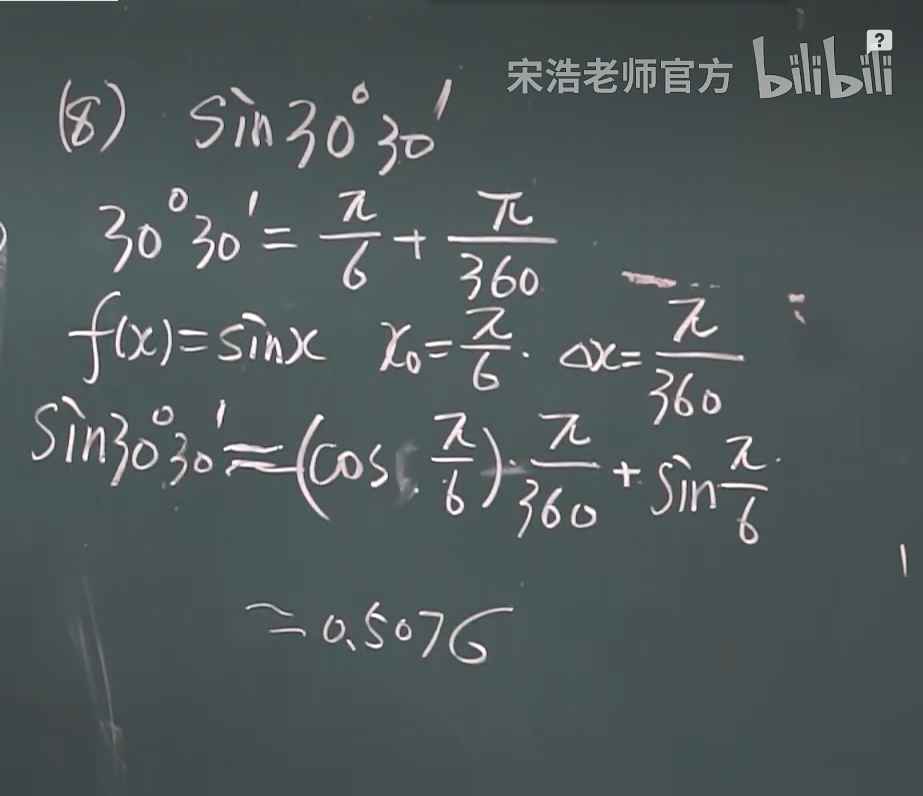 宋浩老师官方 bilibili
?
(8) sin30°30′
30°30′=π/6+π/360
f(x)=sinx x₀=π/6. Δx=π/360
sin30°30′≈(cos π/6)·π/360+sin π/6
≈0.5076